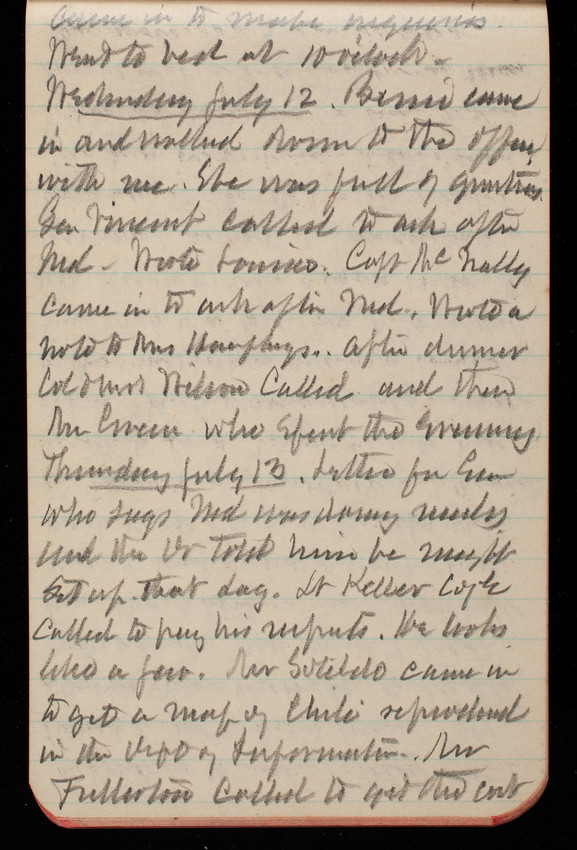 came in to make inquiries.
Went to bed at 10 o'clock.
Wednesday July 12. Bessie came
in and walked down to the office
with me. She was full of
Gen Vincent called to ask after
Ned - Wrote Louise. Capt McNally
came in to ask after Ned. Wrote a
note to Mrs Humphreys. After dinner
Col & Mrs Wilson called and then
Mr Green who spent the evening
Thursday July 13. Letter from
who says Ned was doing nicely
and the Dr told him he might
set up that day. Lt Keller
called to pay his respects. He looks
like a Jew. Mr Soteldo came in
to get a map of Chili reproduced
in the Dept of Information. Mr
Fullerton called to get the